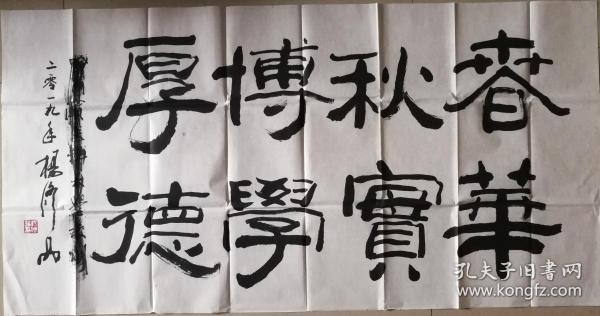 春華
秋實
博學
厚德
二零一九年 楊
孔夫子旧书网
www.kongfz.com